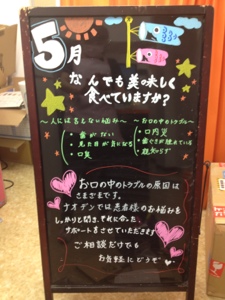 5月
なんでも美味しく
食べていますか?
～人には言えない悩み～
・歯がない
・見た目が気になる
・口臭
～お口の中のトラブル～
・口内炎
・歯ぐきが腫れている
・親知らず
お口の中のトラブルの原因は
さまざまです。
ナオデンでは患者様のお悩みを
しっかりと聞き、それに合った
サポートをさせていただきます
ご相談だけでも
お気軽にどうぞ